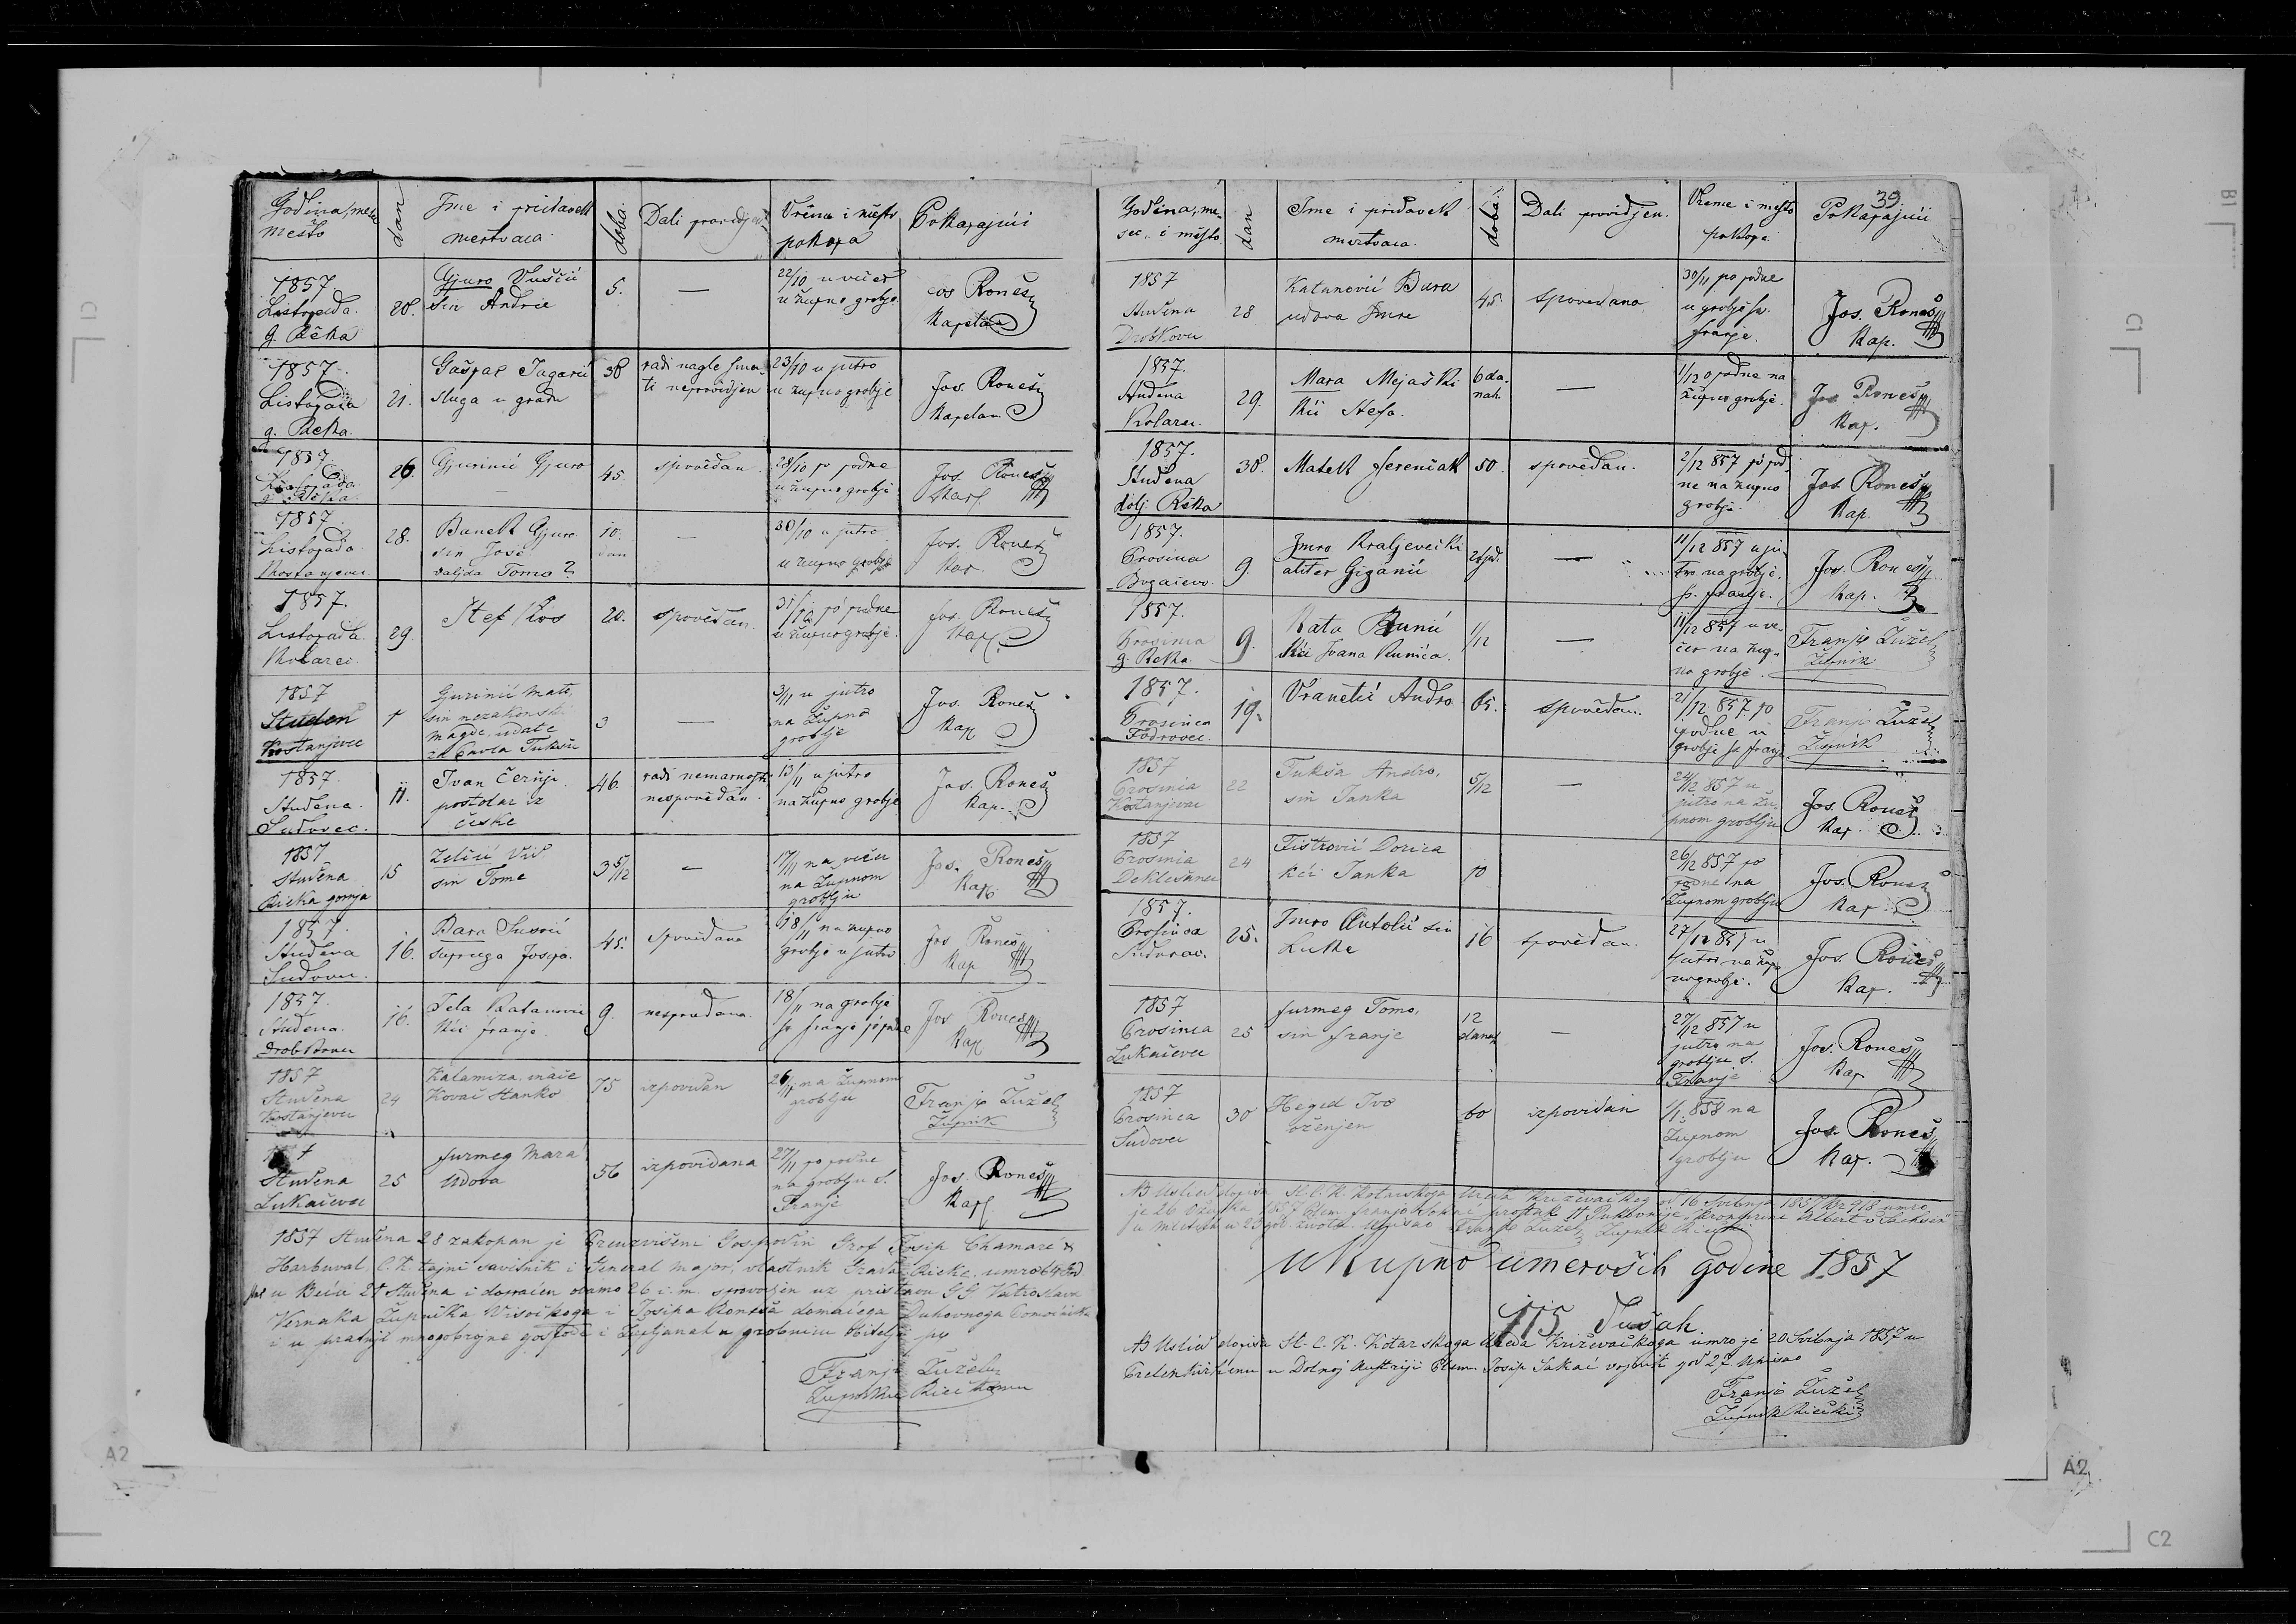 Godina, mesto
dan
Ime i pridavek mertvaca
doba
Dali providjen
Vrěme i městó pokopa
Pokapajući
1857 Listopada g. Rěka
20.
Gjuro Vuščić sin Andrie
5.
—
22/10 u večer u župno groblje
Jos Roneš Kapelan
1857. Listopada g. Rěka.
21.
Gašpar Jagarić sluga u gradu
38
radi nagle smerti neprovidjen
23/10 u jutro u župno groblje
Jos. Roneš Kapelan
1857. Listopada g. Rěka.
26.
Gjurinić Gjuro
45.
spovědan.
28/10 po podne u župno groblje
Jos. Roneš Kap.
1857. Listopada Kostanjevec
28.
Banek Gjuro sin Jose valjda Tomo?
10. dan
—
30/10 u jutro u župno groblje
Jos. Roneš Kap.
1857. Listopada Kolarec.
29.
Štef Kos
20.
spovědan.
31/10 po podne u župno groblje.
Jos. Roneš Kap.
1857 Studen Kostanjevec
1
Gurinić Mato, sin nezakonski Magde, udate za Pavla Tukšu
3
—
3/11 u jutro na župno groblje
Jos. Roneš Kap
1857. Studena. Sudovec.
11.
Ivan Černji postolar iz česke
46.
radi nemarnosti nespovědan.
13/11 u jutro na župno groblje
Jos. Roneš Kap.
1857 Studena Rieka gornja
15
Zelčić Vid sin Tome
3 5/12
—
17/11 na večer na župnom groblju
Jos. Roneš Kap.
1857. Studena Sudovec.
16.
Bara supruga Josipa.
45.
spovědana
18/11 na župno groblje u jutro
Jos Roneš Kap
1857. Studena. Drobkovec
16.
Jela Katanović kći Franje.
9.
nesprovedena.
18/11 na groblje sv Franje po podne
Jos Roneš Kap
1857 Studena Kostanjevec
24
Kalamiza, inače Kovač Stanko
75
izpovidan
26/11 na Župnom groblju
Franjo Žužel Župnik
Studena Lukačevec
25
Jurmeg Mara Udova
56
izpovidana
27/11 po podne na groblju s. Franje
Jos. Roneš Kap
1857 Studena 28 zakopan je Preuzvišeni Gospodin Grof Josip Chamaré
Harbuval, C. K. tajni savitnik i General Major, vlastnik Grada Rieke, umro
u Beču 21 Studena i dopraćen ovamo 26 i. m. sprovodjen uz
Vernaka Župnika Visočkoga i Josipa Roneša domaćega Duhovnoga Pomoćnika
i u pratnji mnogobrojne gospode i Župljanah u grobnicu obitelji
Franjo Žužel
39.
Godina, mesec i město.
dan
Ime i pridavek mertvaca.
doba.
Dali providjen.
Vreme i mesto pokopa.
Pokapajući
1857 Studena Drobkovec
28
Katanović Bara udova Imre
45.
spovedana
30/11 po podne u groblje sv. Franje.
Jos. Roneš Kap.
1857. Studena Kolarec.
29.
Mara Mejaški kći Stefa.
6 danah.
—
1/12 o podne na župno groblje.
Jos Roneš Kap.
1857. Studena dolj. Rěka
30.
Matek Jerenčak
50.
spovědan.
2/12 857 po podne na župno groblje.
Jos Roneš Kap.
1857. Prosinca
9.
Imro Kraljevečki aliter Giganić
—
11/12 857 u jutro na groblje. s. Franje.
Jos. Roneš Kap.
1857. Prosinca g. Rěka.
9.
Kata Runić kći Ivana Runića.
1/12
—
11/12 857 u večer na župno groblje.
Franjo Žužel Župnik
1857. Prosinca Fodrovec.
19.
Vranetić Andro
65.
spovědan.
21/12 857. po podne u groblje sv Franje
Franjo Žužel Župnik
1857 Prosinca Kostanjevec
22
Tukša Andro, sin Janka
5/12
—
24/12 857 u jutro na župnom groblju
Jos. Roneš Kap.
1857 Prosinca Deklešanec
24
Fistrović Dorica kći Janka
10
26/12 857 po podne na Župnom groblju
Jos. Roneš Kap
1857. Prosinca Sudovac.
25.
Imro Antolić sin Luke
16
spovědan.
27/12 857 u jutro na župno groblje.
Jos. Roneš Kap.
1857 Prosinca Lukačevec
25
Jurmeg Tomo, sin Franje
12 danah
—
27/12 857 u jutro na groblju s. Franje
Jos. Roneš Kap
1857 Prosinca Sudovec
30
Heged Ivo oženjen
60
izpovidan
1/1 858 na Župnom groblju
Jos. Roneš Kap.
NB Uslid dopisa Sl. C. K. Kotarskoga Ureda Križevačkog od 16 Svibnja 1857 Nr 918 umro
je 26 Ožujka 1857 Plem. Franjo Sokač prostak 11 Pukovnije Kronprinz Albert v Sachsen
u Mletcih u 23 god. života. upisao Franjo Žužel Župnik Riečki
Ukupno umerovših godine 1857
115 Dušah.
NB Uslid dopisa Sl. C. K. Kotarskoga Ureda Križevačkoga umro je 20 Svibnja 1857 u
u Dolnoj Austriji Plem. Josip Sakač vojnik god 27. Upisao
Franjo Žužel
Župnik Riečki